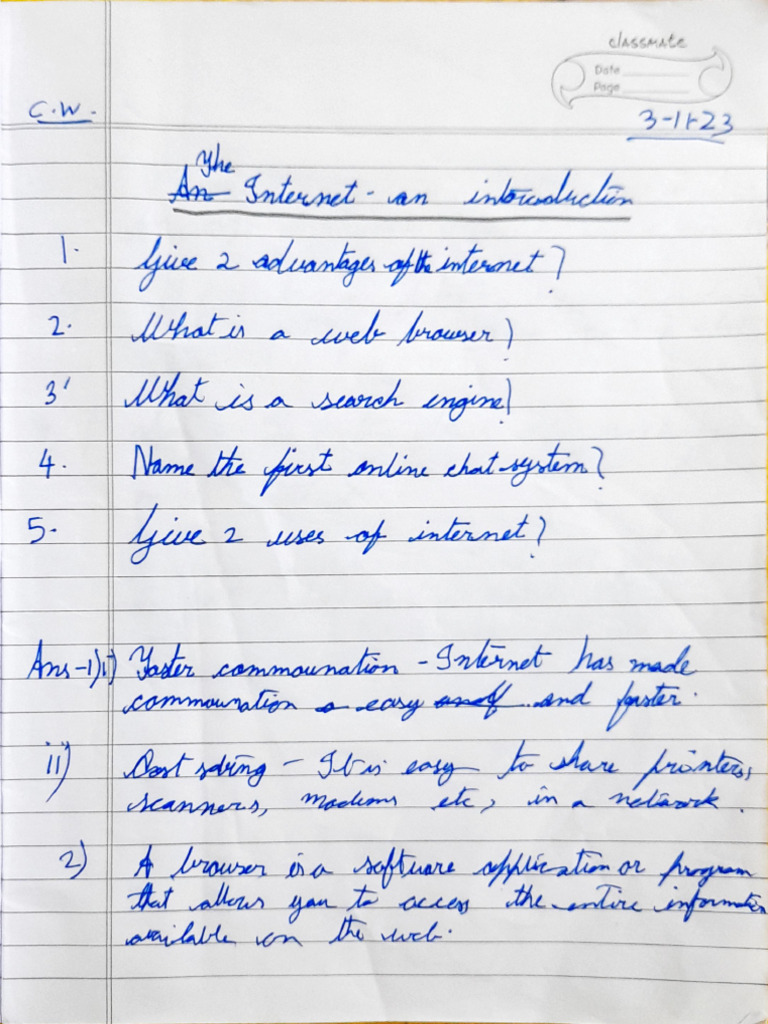 classmate
Date
Page
C.W.
3-11-23
The
An Internet - an introduction
1. Give 2 advantages of the internet?
2. What is a web browser?
3. What is a search engine?
4. Name the first online chat system?
5. Give 2 uses of internet?
Ans-1)i) Faster commounation - Internet has made
commounation easy and faster.
ii) Cost sdring - It is easy to share printers,
scanners, modems etc, in a network.
2) A browser is a software application or program
that allows you to access the entire information
available on the web.